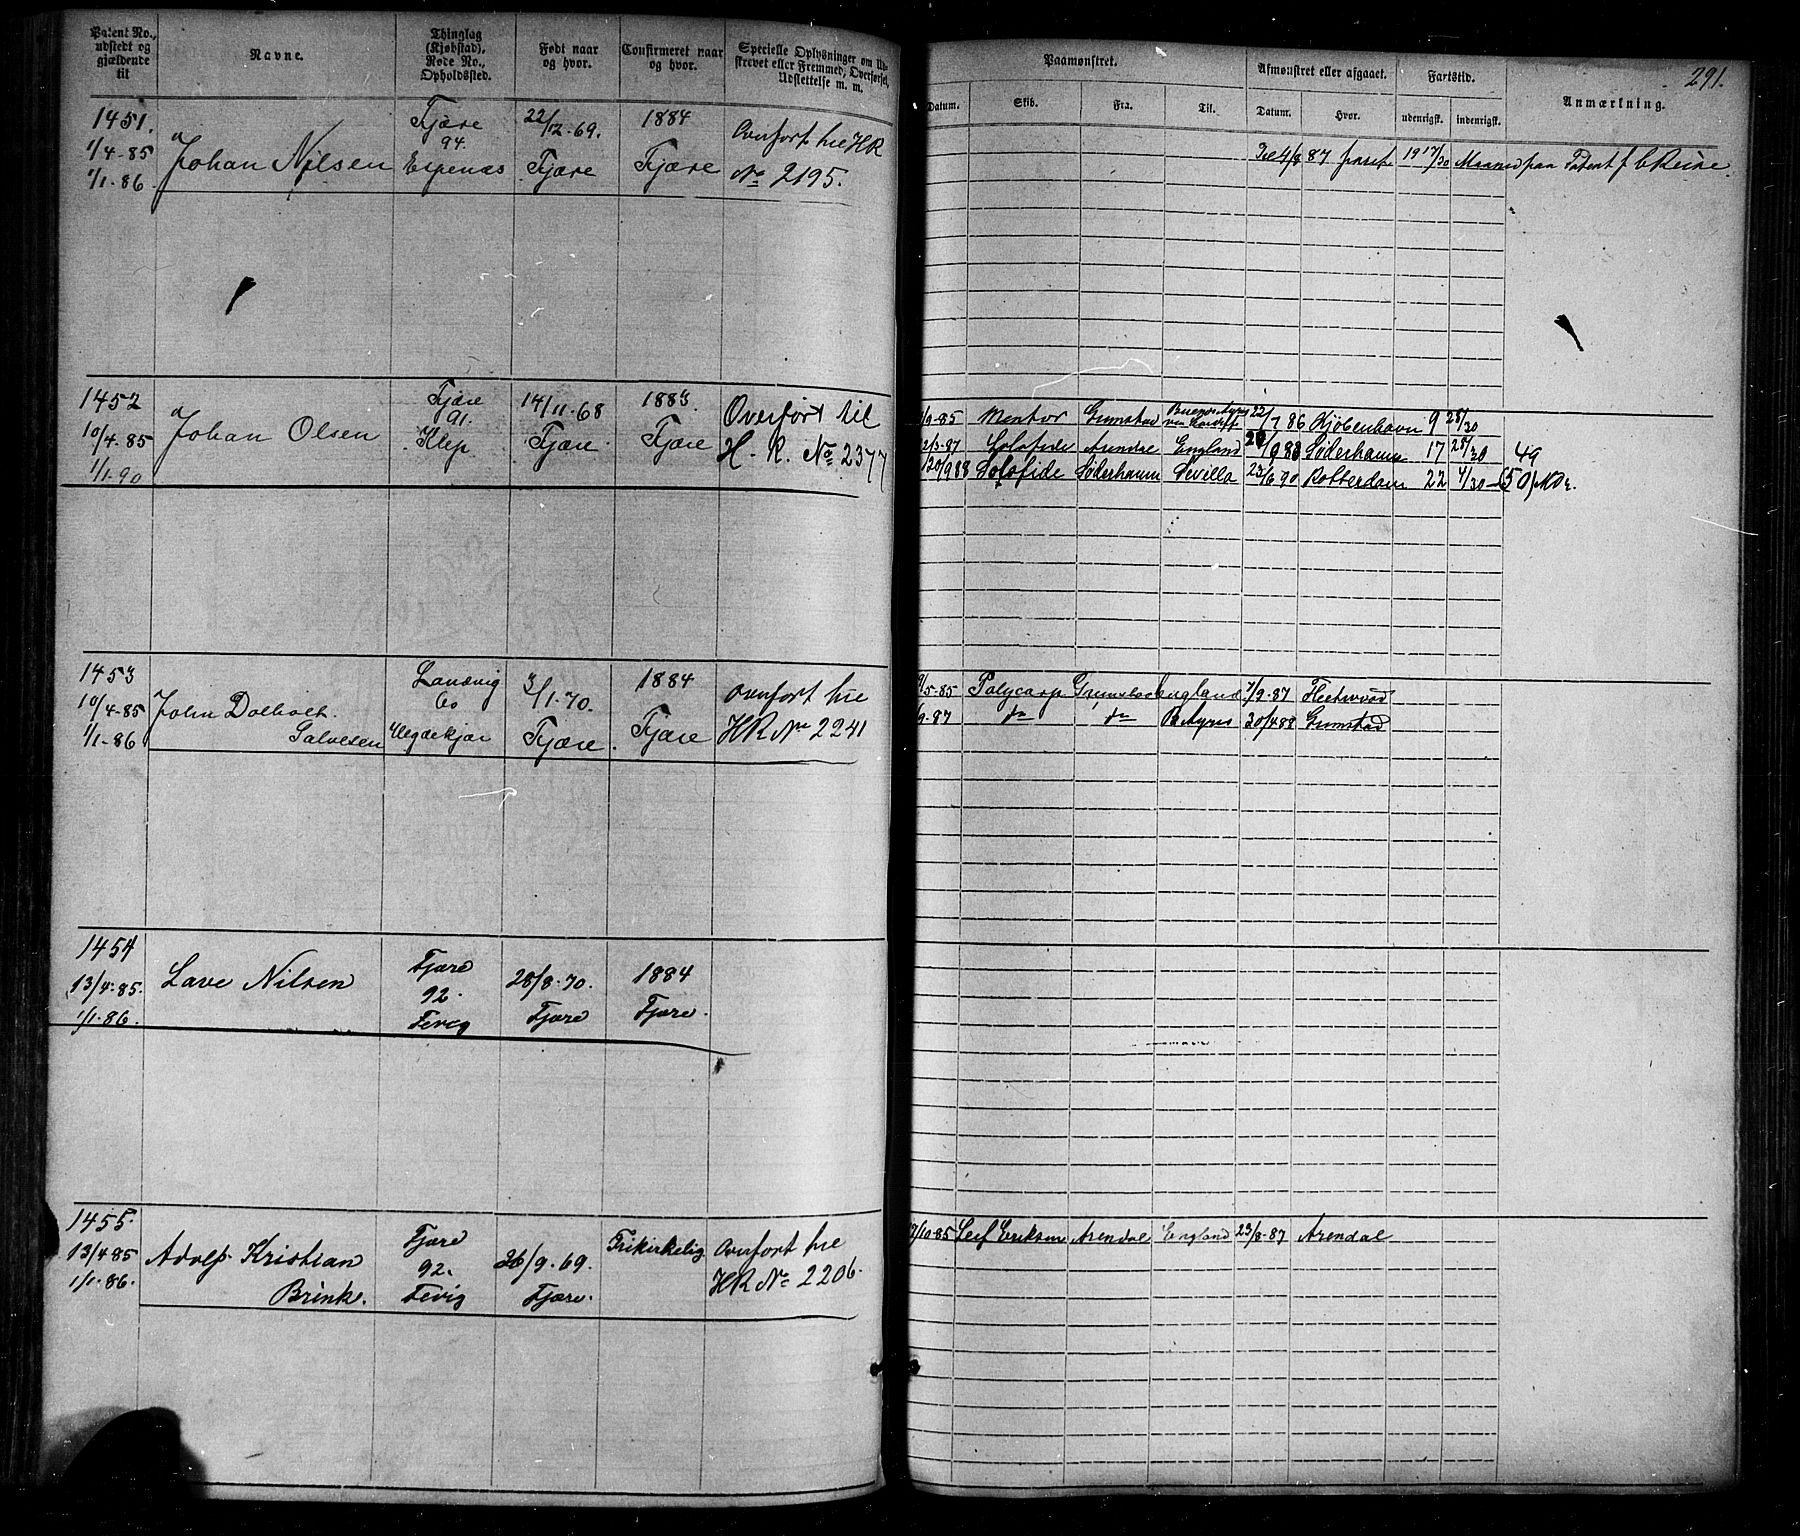 Patent No., udstedt og gjældende til
Navne.
Thinglag (Kjøbstad), Rode No., Opholdssted.
Født naar og hvor.
Confirmeret naar og hvor.
Specielle Oplysninger om Udskrevet eller Fremmed, Overførsel, Udslettelse m. m.
Paamønstret.
Datum. Skib. Fra. Til.
Afmønstret eller afgaaet.
Datum. Hvor.
Fartstid.
udenrigsk. indenrigsk.
Anmærkning.
291.
1451. 1/4-85 1/1-86
Johan Nilsen
Fjære 94. Espenæs
22/12-69. Fjære
1884 Fjære
Overført til HR No 2195.
Til 4/8 87 19 17/30 Maaned paa Patent f
1452 10/4-85 1/1-90
Johan Olsen
Fjære 91. Klep.
14/11-68 Fjære
1883. Fjære
Overført til H. R. No 2377
/9-85 Mentor Grimstad Buenos Ayres 22/7 86 Kjøbenhavn 9 28/30
2/3-87 Solofide Arendal England 20/9 88 Søderhamn 17 28/30 49
20/9 88 Solofide Søderhamn Sevilla 25/6 90 Rotterdam 22 4/30 (50) Mdr.
1453 10/4-85 1/1-86
John Dalholt Salvesen
Landvig 60
3/1-70. Fjære
1884 Fjære
Overført til HR No 2241
/5-85 Polycarp Grimstad England 7/9-87 Fleetwood
/9-87 do do B Ayres 30/4 88 Grimstad
1454 13/4-85. 1/1-86.
Lave Nilsen
Fjære 92. Fevig
28/8-70. Fjære
1884 Fjære.
1455. 13/4-85 1/1-86.
Adolf Kristian Brink.
Fjære 92. Fevig
26/9-69. Fjære.
Frikirkelig
Overført til HR No 2206.
/10-85 Leif Erikson Arendal England 23/8-87 Arendal